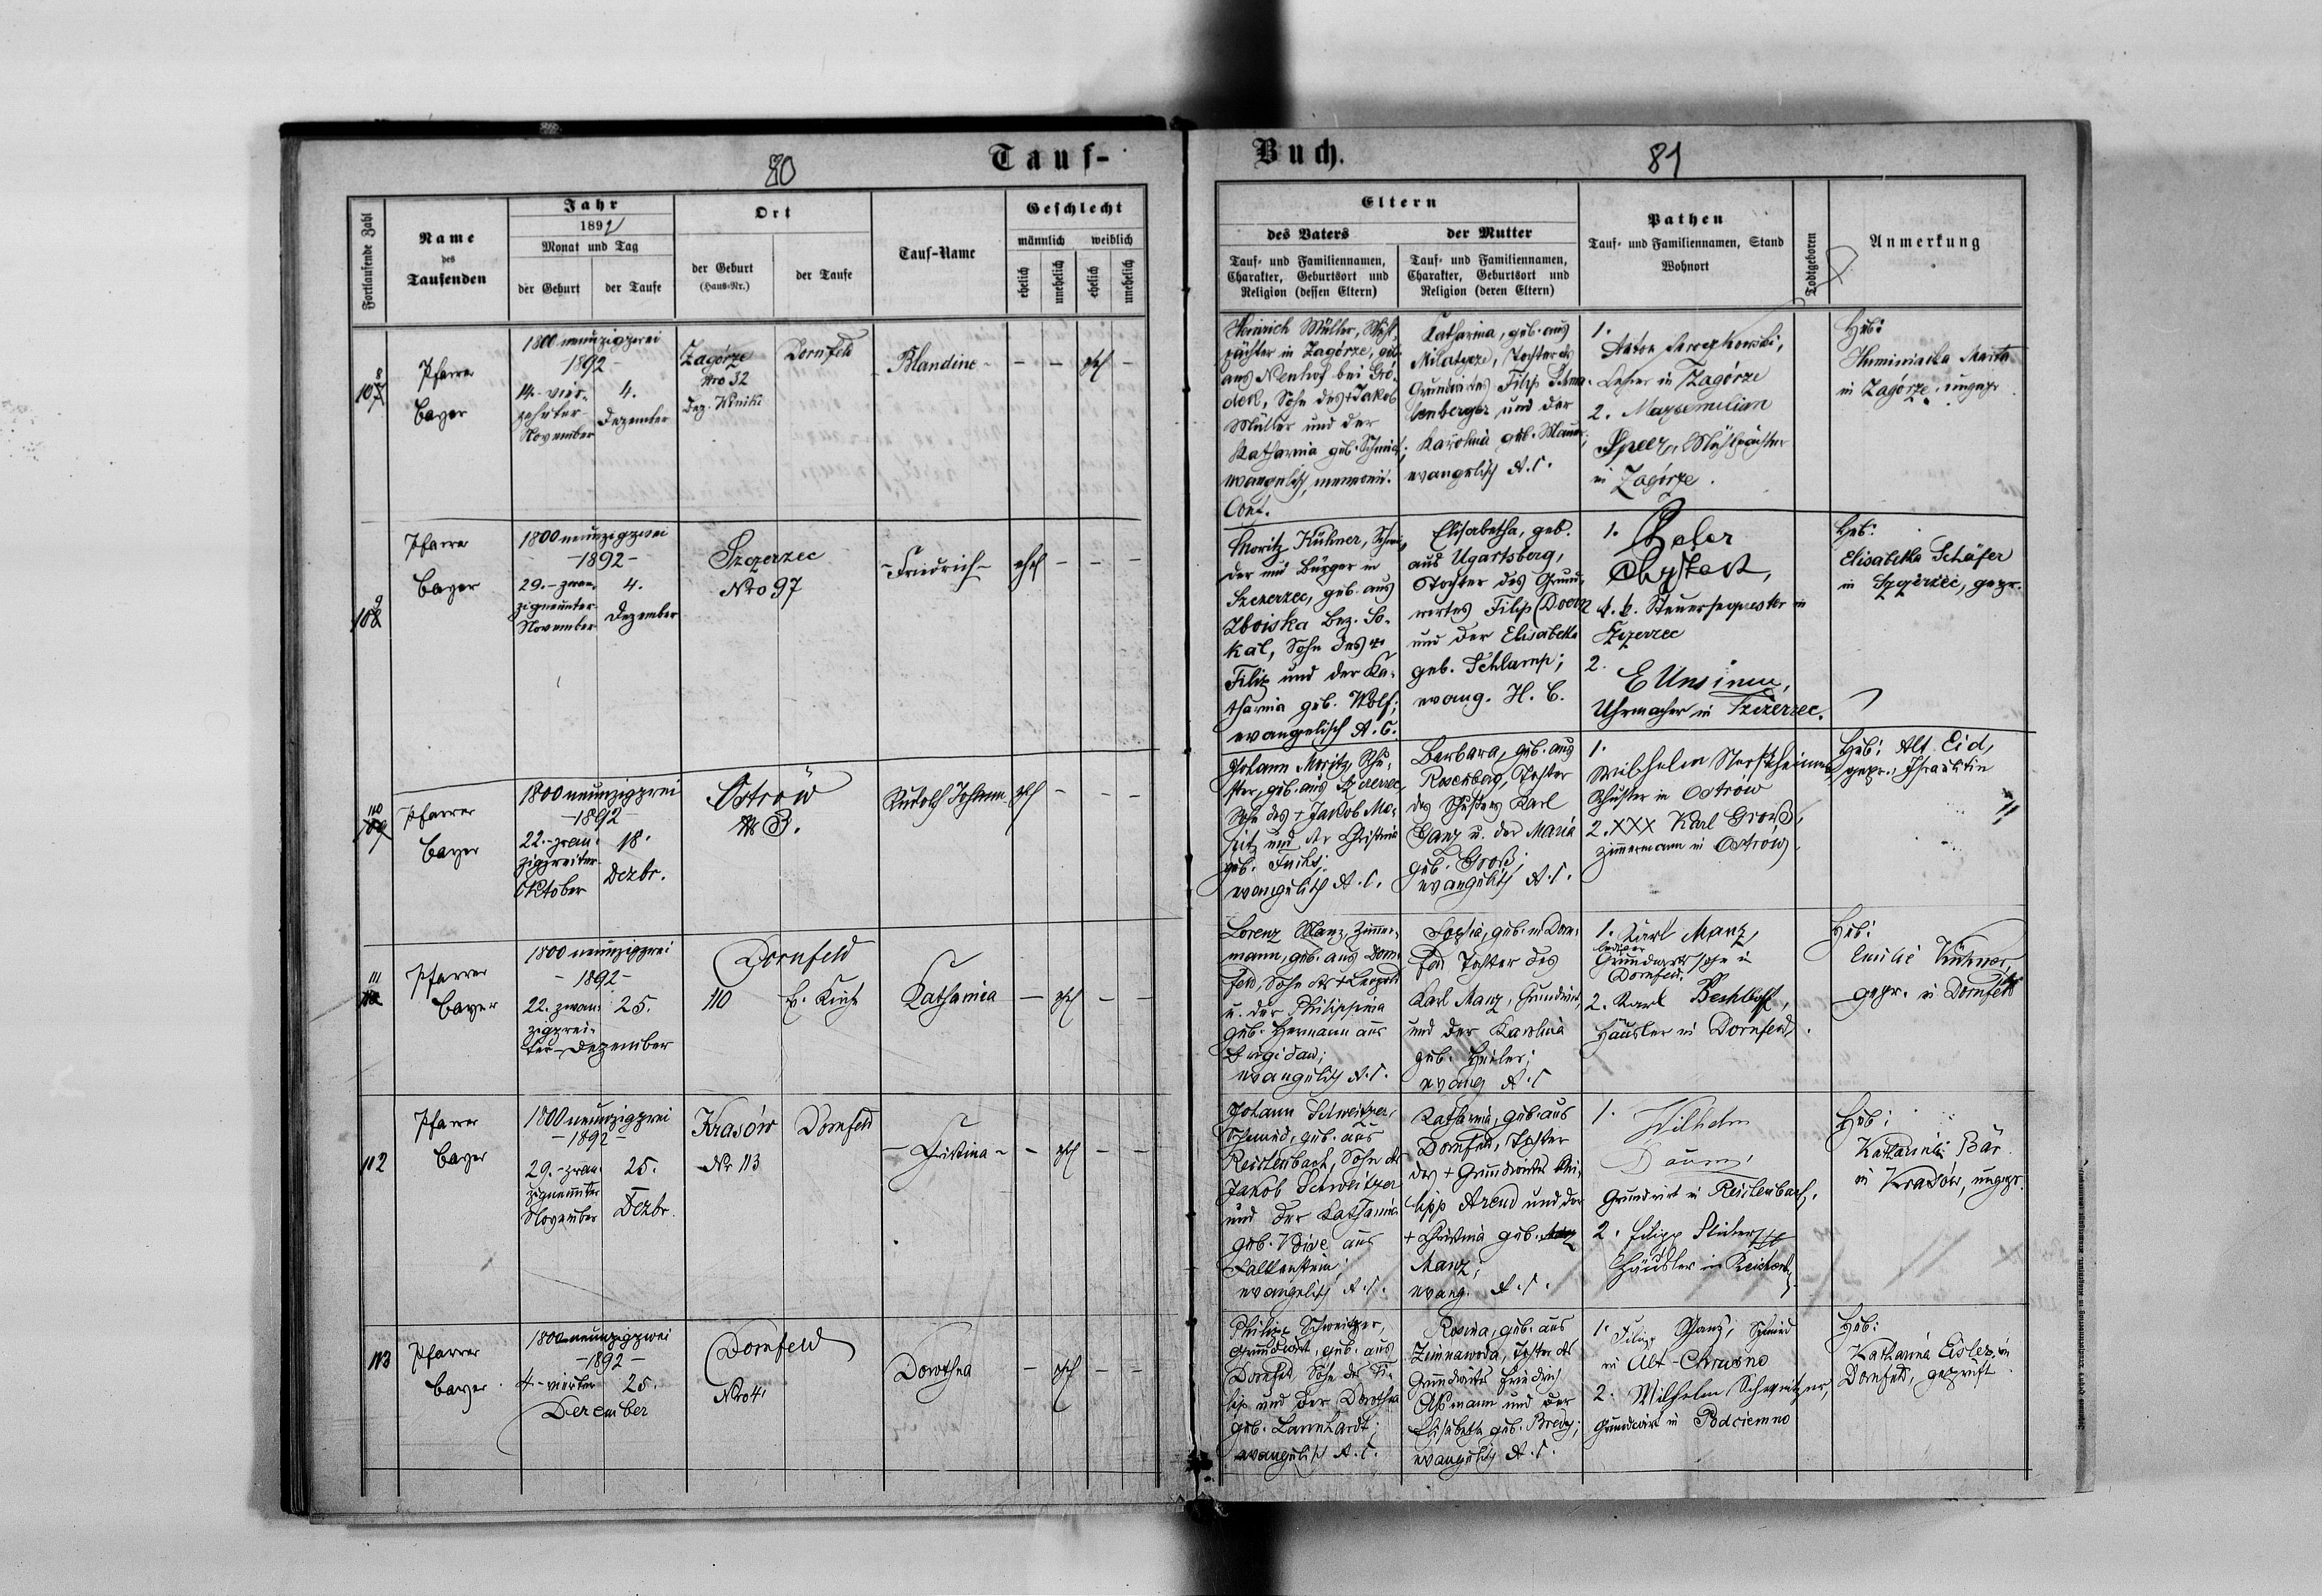 80
Tauf-
Buch.
81
Fortlaufende Zahl
Name
des
Taufenden
Jahr
1892
Monat und Tag
der Geburt
der Taufe
Ort
der Geburt
(Haus-Nr.)
der Taufe
Tauf-Name
Geschlecht
männlich
weiblich
ehelich
unehelich
ehelich
unehelich
Eltern
des Vaters
Tauf- und Familiennamen,
Charakter, Geburtsort und
Religion (dessen Eltern)
der Mutter
Tauf- und Familiennamen,
Charakter, Geburtsort und
Religion (deren Eltern)
Pathen
Tauf- und Familiennamen, Stand
Wohnort
Todtgeboren
Anmerkung
108
Pfarrer
Bayer
1800 neunzigzwei
1892
14.-vier-
zehnter
November
4.
Dezember
Zagórze
Nro 32
Bez. Winiki
Dornfeld
Blandine -
- - ehel -
Heinrich Müller,
pächter in Zagórze, geb.
aus Neuhof bei Gró-
dek, Sohn des + Jakob
Müller und der
Katharina geb. Schmidt;
evangelisch, mennonit.
Conf.
Katharina, geb. aus
Tochter des
Grundwirtes Filip
lenberger und der
Karolina geb.
evangelisch A.C.
1.
Anton
Lehrer in Zagórze
2. Maxsemilian
Speer, Mühlpächter
in Zagórze.
Heb:
Huminiacka Maria
in Zagórze, ungepr.
109
Pfarrer
Bayer
1800 neunzigzwei
-1892-
29.-zwan-
zigneunter
November
4.
Dezember
Szczerzec
Nro 97
-Friedrich-
ehel - - -
Moritz Kühner, Schnei-
der und Bürger in
Szczerzec, geb. aus
Zboiska Bez. So-
kal, Sohn des +
Filip und der Ka-
tharina geb. Wolf;
evangelisch A.C.
Elisabetha, geb.
aus Ugartsberg,
Tochter des Grund-
wirtes Filip Doern
und der Elisabetha
geb. Schlamp;
evang. H.C.
1.
k. k. Steuersequester in
Szczerzec
2.
E Unsinn,
Uhrmacher in Szczerzec.
Heb:
Elisabetha Schäfer
in Szczerzec, gepr.
110
Pfarrer
Bayer
1800 neunzigzwei
-1892-
22.-zwan-
zigzweiter
Oktober
18.
Dezbr.
Ostrów
№ 3.
Rudolf Johann
ehel - - -
Johann Moritz, Schu-
ster, geb. aus Szczerzec,
Sohn des + Jakob Mo-
ritz und der Christina
geb.
evangelisch A.C.
Barbara, geb. aus
Rosenberg, Tochter
des Schusters Karl
Ganz u. der Maria
geb. Groß;
evangelisch A.C.
1.
Wilhelm
Schuster in Ostrów
2. XXX Karl Groß,
Zimmermann in Ostrów
Heb: Alt Eid,
gepr., Israelitin
111
Pfarrer
Bayer
1800 neunzigzwei
-1892-
22. zwan-
zigzwei-
ter-Dezember
25.
Dornfeld
110
E. Kirche
Katharina
- ehel - -
Lorenz Manz, Zimmer-
mann, geb. aus Dorn-
feld, Sohn des + Leopold
u. der Philippina
geb. Hermann aus
Brigidau;
evangelisch A.C.
Sophia, geb. in Dorn-
feld Tochter des
Karl Manz, Grundwirt,
und der Karolina
geb.
evang A.C
1. Karl Manz,
lediger
Grundwirtssohn in
Dornfeld.
2. Karl Bechtloff,
Häusler in Dornfeld.
Heb:
Emilie Kühner,
gepr. in Dornfeld
112
Pfarrer
Bayer
1800 neunzigzwei
-1892-
29.-zwan-
zigneunter
November
25.
Dezbr.
Krasów
Nr 113
Dornfeld
- Christina -
- ehel - -
Johann Schweitzer,
Schmied, geb. aus
Reichenbach, Sohn des
Jakob Schweitzer
und der Katharina
geb. aus
Falkenstein;
evangelisch A.C.
Katharina, geb. aus
Dornfeld, Tochter
des + Grundwirtes Phi-
lipp Arend und der
+ Christina geb.
Manz;
evang. A.C.
1.
Wilhelm
Daum,
Grundwirt in Reichenbach.
2. Filipp
Häusler in Reichenb.
Heb:
Katharina Bär
in Krasów, ungepr.
113
Pfarrer
Bayer
1800 neunzigzwei
-1892-
4.-vierter
25.
December
Dornfeld
Nro 4.
Dorothea
- ehel - -
Philipp Schweitzer,
Grundwirt, geb. aus
Dornfeld, Sohn des Fi-
lip und der Dorothea
geb. Lannhardt;
evangelisch A.C.
Rosina, geb. aus
Zimnawoda, Tochter des
Grundwirtes Friedrich
Aßmann und der
Elisabeta geb. Bredy;
evangelisch A.C.
1. Filip Manz, Schmied
in Alt-Chrusno
2. Wilhelm Schweitzer,
Grundwirt in Podciemno
Heb:
Katharina Eisler, in
Dornfeld, geprüft.